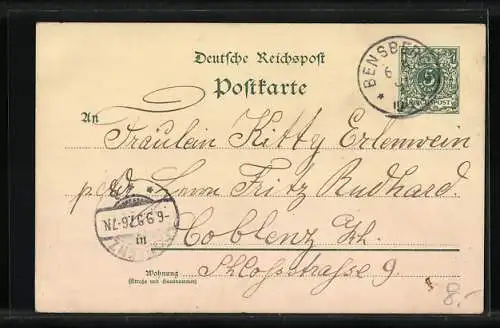 Deutsche Reichspost
Postkarte
BENSBERG
6
5
REICHSPOST
An
Fräulein Kitty Erlenwein
p. Adr. Herrn Fritz Rudhard.
-6.9.97.6-7N.
in Coblenz Rh.
Schloßstrasse 9.
Wohnung
(Straße und Hausnummer)
8.-